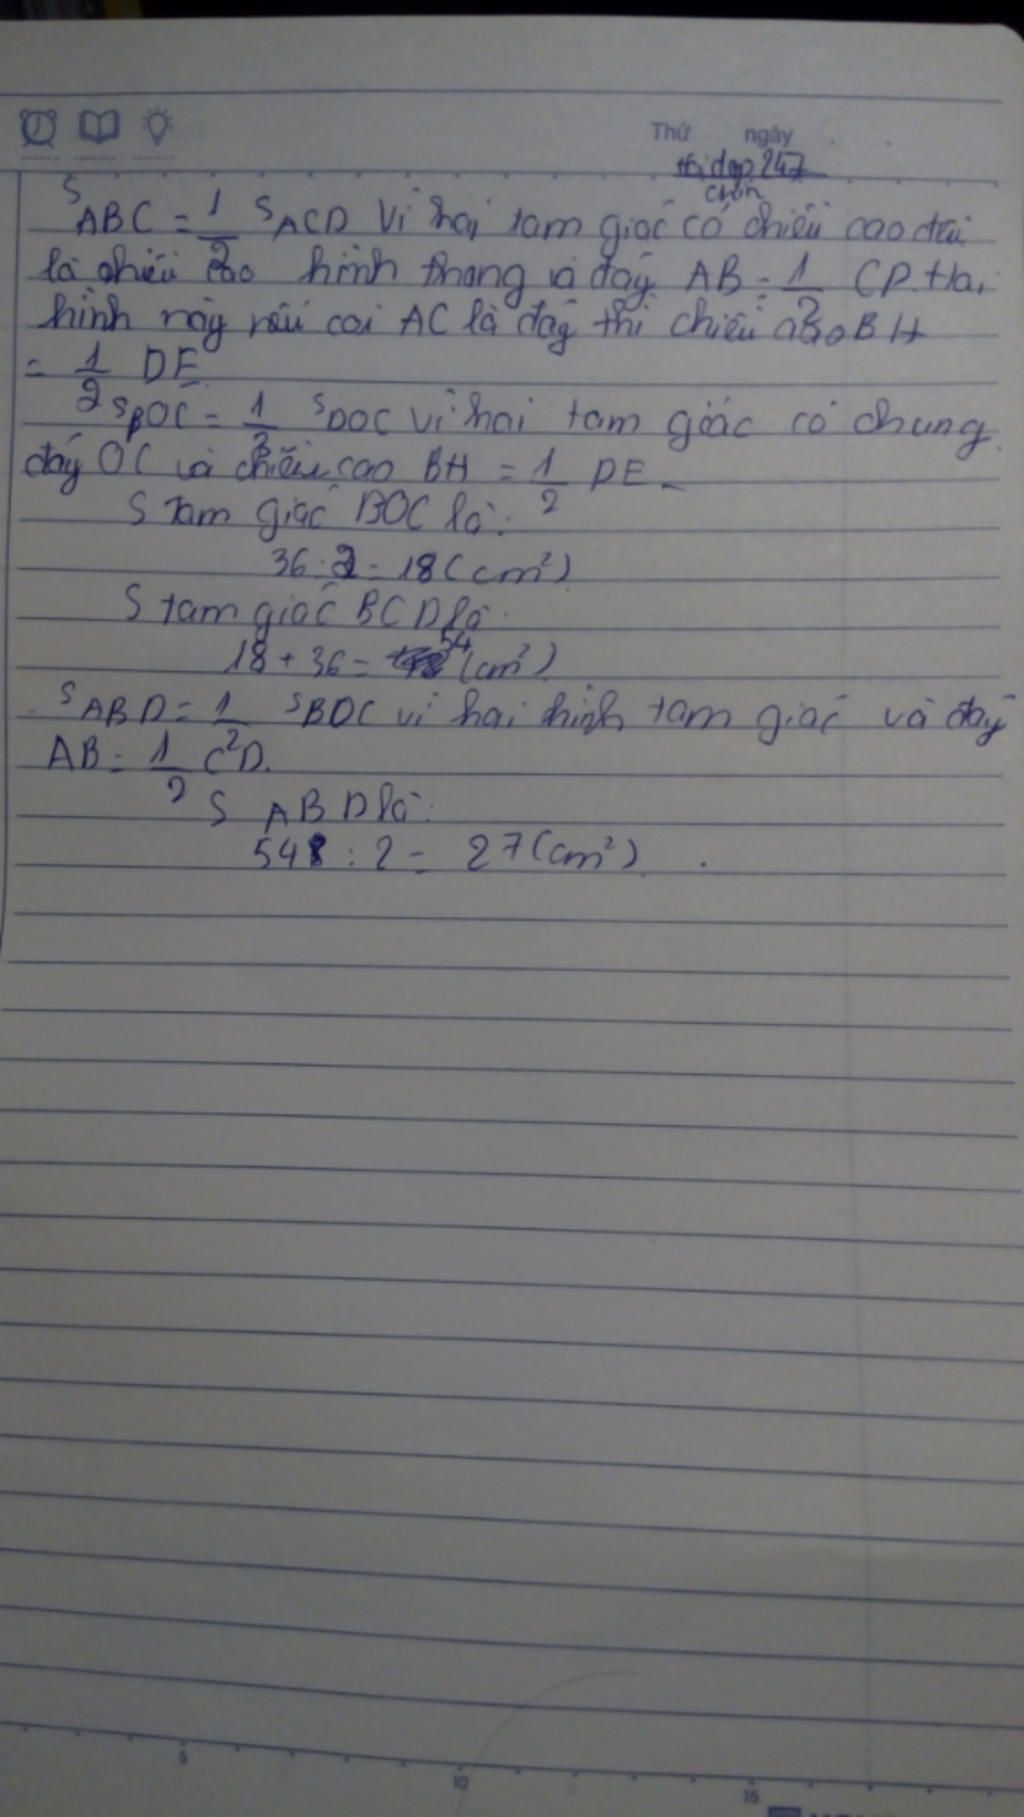 Thứ ngày
S ABC = 1/2 S ACD Vì hai tam giác có chiều cao đều
là chiều cao hình thang và đáy AB = 1/2 CD. Hai
hình này nếu coi AC là đáy thì chiều cao BH
= 1/2 DE
S BOC = 1/2 S DOC vì hai tam giác có chung
đáy OC và chiều cao BH = 1/2 DE
S tam giác BOC là:
36 : 2 = 18 (cm²)
S tam giác BCD là:
18 + 36 = 54 (cm²)
S ABD = 1/2 S BDC vì hai hình tam giác và đáy
AB = 1/2 CD.
S ABD là:
54 : 2 = 27 (cm²)
5 10 15